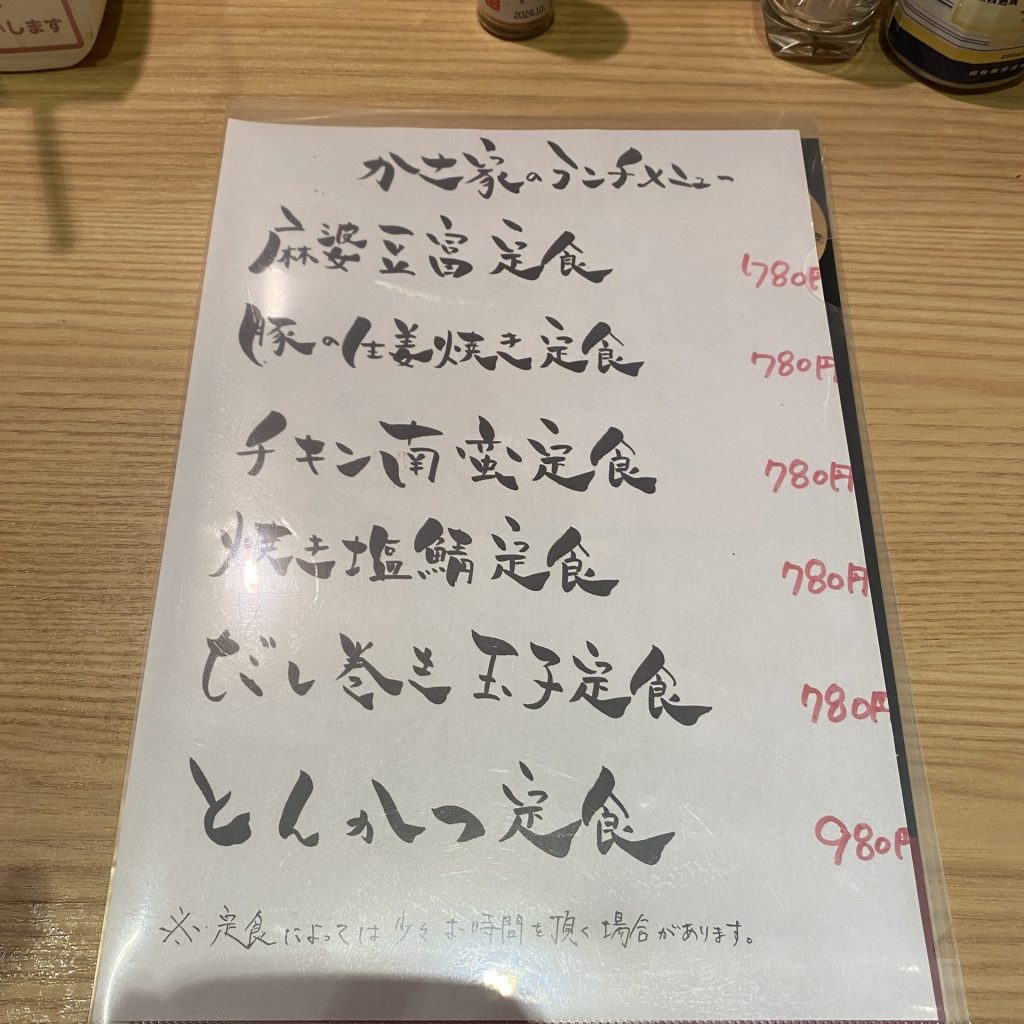 します
2024.10.
かさ家のランチメニュー
麻婆豆富定食 780円
豚の生姜焼き定食 780円
チキン南蛮定食 780円
焼き塩鯖定食 780円
だし巻き玉子定食 780円
とんかつ定食 980円
※定食によっては少々お時間を頂く場合があります。